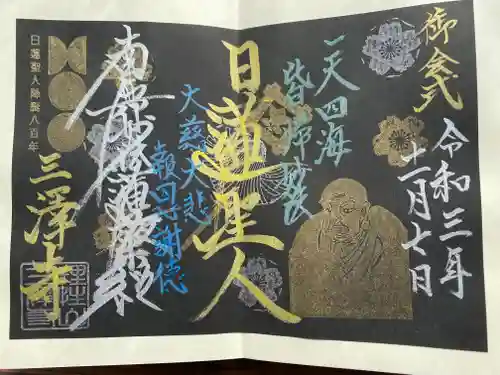 御会式
令和三年
十一月七日
一天四海
皆帰妙法
日蓮聖人
大慈大悲
報恩謝徳
南無妙法蓮華経
三澤寺
日蓮聖人降誕八百年